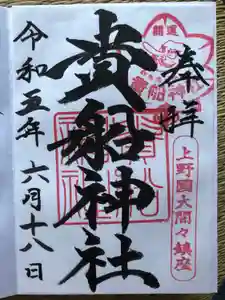 奉拝
開運
貴船神社
上野國大間々鎮座
貴船神社
令和五年六月十八日